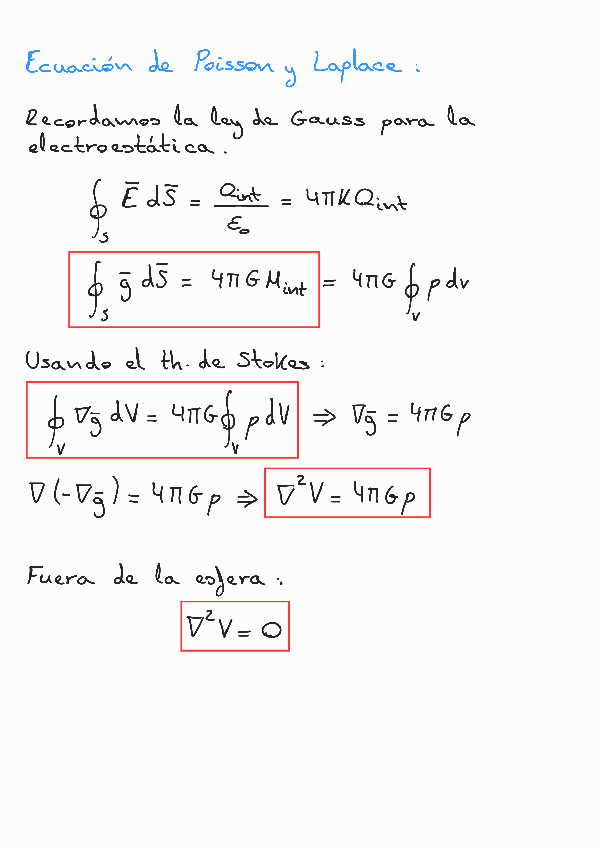 Ecuación de Poisson y Laplace :
Recordamos la ley de Gauss para la
electroestática .
∮_S Ē dS̄ = Q_int / ε₀ = 4πKQ_int
∮_S ḡ dS̄ = 4πGM_int = 4πG ∮_V ρ dv
Usando el th. de Stokes :
∮_V ∇ḡ dV = 4πG ∮_V ρ dV ⇒ ∇ḡ = 4πGρ
∇(-∇ḡ) = 4πGρ ⇒ ∇²V = 4πGρ
Fuera de la esfera :
∇²V = 0